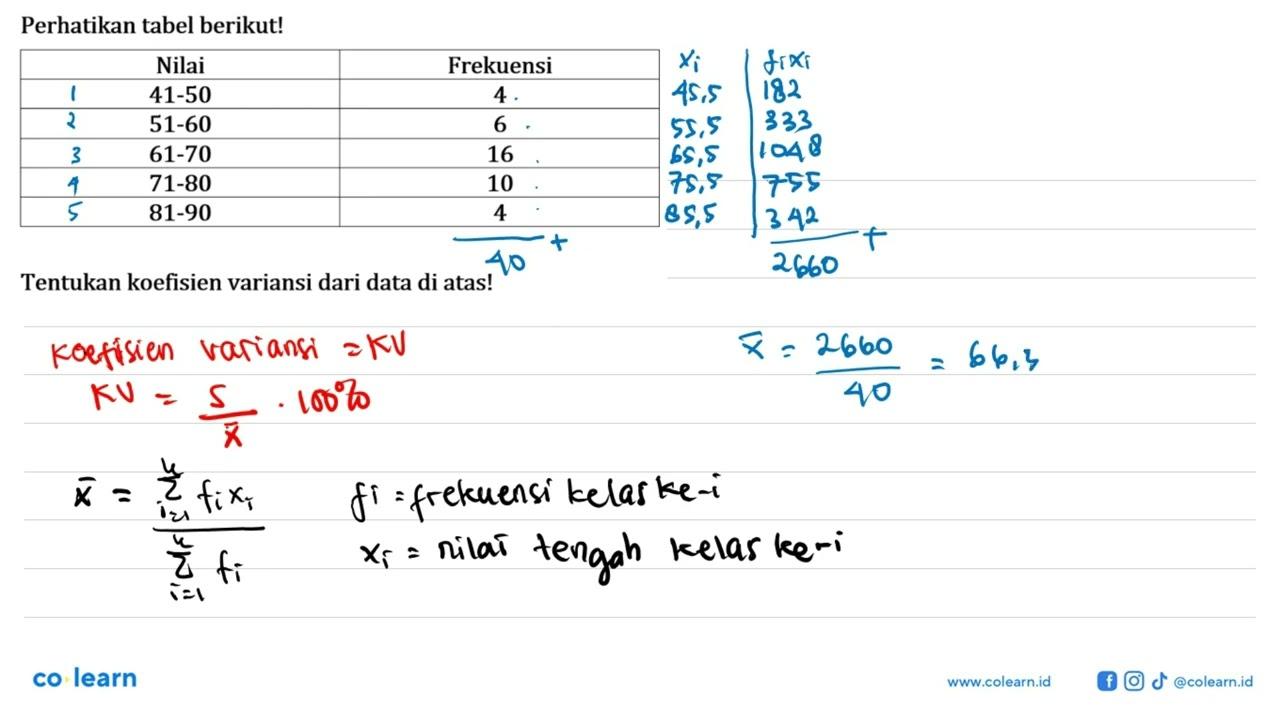 Perhatikan tabel berikut!
Nilai Frekuensi xi fixi
1 41-50 4 45,5 182
2 51-60 6 55,5 333
3 61-70 16 65,5 1048
4 71-80 10 75,5 755
5 81-90 4 85,5 342
40 + 2660 +
Tentukan koefisien variansi dari data di atas!
Koefisien variansi = KV
KV = S/x̄ . 100%
x̄ = 2660/40 = 66,5
x̄ = Σ i=1 k fi xi / Σ i=1 k fi
fi = frekuensi kelas ke-i
xi = nilai tengah kelas ke-i
co learn
www.colearn.id @colearn.id